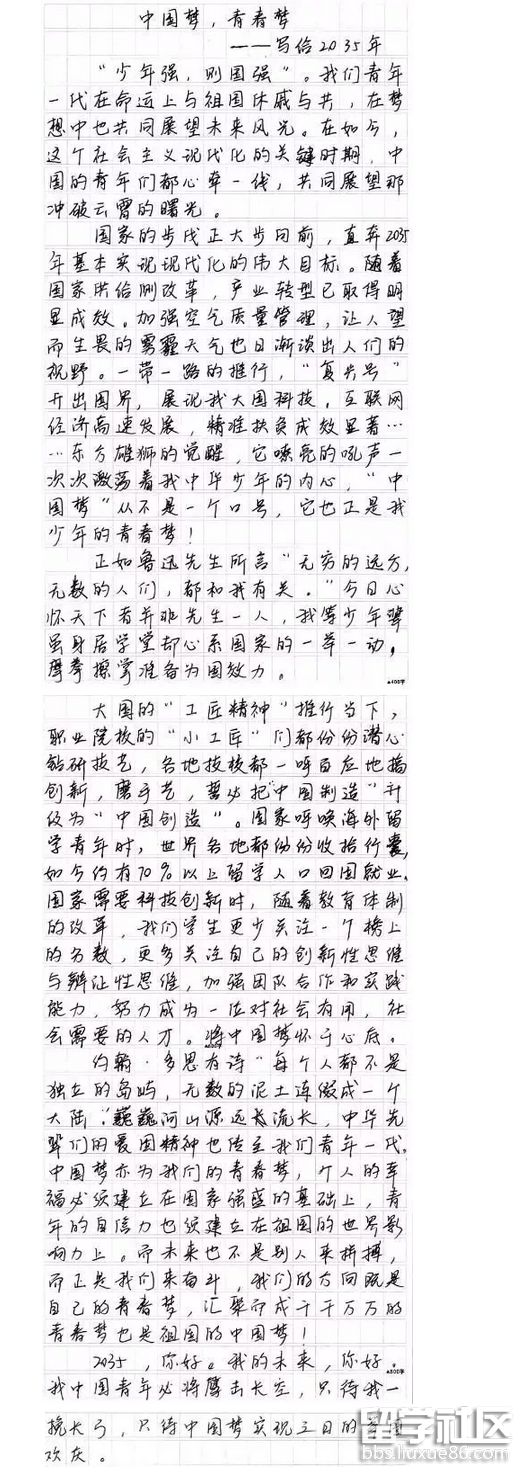 中国梦，青春梦
——写给2035年
“少年强，则国强”。我们青年
一代在命运上与祖国休戚与共，在梦
想中也共同展望未来风光。在如今，
这个社会主义现代化的关键时期，中
国的青年们都心牵一线，共同展望那
冲破云霄的曙光。
国家的步伐正大步向前，直奔2035
年基本实现现代化的伟大目标。随着
国家供给侧改革，产业转型已取得明
显成效。加强空气质量管理，让人望
而生畏的雾霾天气也日渐淡出人们的
视野。一带一路的推行，“复兴号”
开出国界，展现我大国科技。互联网
经济高速发展，精准扶贫成效显著…
…东方雄狮的觉醒，它嘹亮的吼声一
次次激荡着我中华少年的内心，“中
国梦”从不是一个口号，它也正是我
少年的青春梦！
正如鲁迅先生所言“无穷的远方，
无数的人们，都和我有关。”今日心
怀天下者并非先生一人，我等少年辈
虽身居学堂却心系国家的一举一动，
摩拳擦掌准备为国效力。
▲400字
大国的“工匠精神”推行当下，
职业院校的“小工匠”们都份份潜心
钻研技艺，各地技校都一呼百应地搞
创新，磨手艺，誓必把“中国制造”升
级为“中国创造”。国家呼唤海外留
学青年时，世界各地都份份收拾行囊，
如今约有70%以上留学人口回国就业。
国家需要科技创新时，随着教育体制
的改革，我们学生更少关注一个榜上
的名数，更多关注自己的创新性思维
与辩证性思维，加强团队合作和实践
能力，努力成为一位对社会有用，社
会需要的人才。将中国梦怀于心底。
约翰·多恩有诗“每个人都不是
独立的岛屿，无数的泥土连做成一个
大陆”。巍巍河山源远长流长，中华先
辈们的爱国精神也传至我们青年一代。
中国梦亦为我们的青春梦，个人的幸
福必须建立在国家强盛的基础上，青
年的自信力也须建立在祖国的世界影
响力上。而未来也不是别人来拼搏，
而正是我们来奋斗，我们的大同既是
自己的青春梦，汇聚而成千千万万的
青春梦也是祖国的中国梦！
2035，你好。我的未来，你好。
▲800字
我中国青年必将鹰击长空，只待我一
挽大弓，只待中国梦实现之日的
欢庆。
留学社区
bbs.liuxue86.com